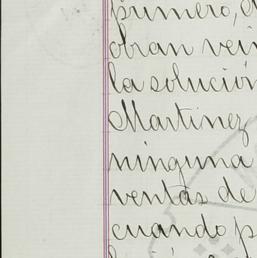 primero,
obran vein
la solución
Martinez
ninguna
ventas de
cuando p